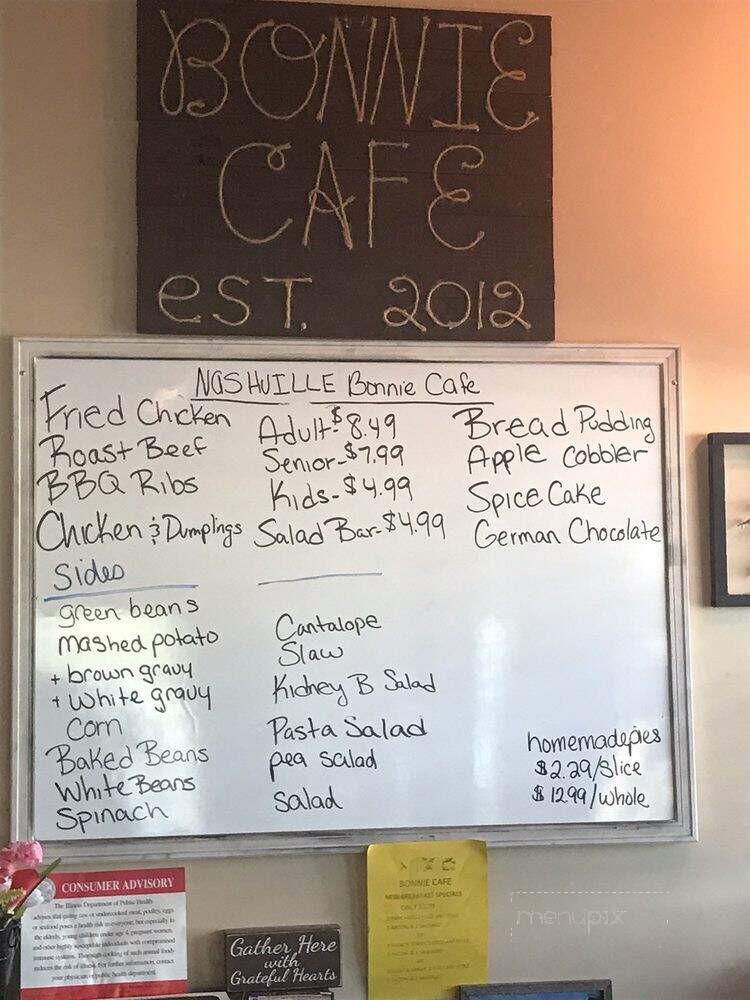 BONNIE
CAFE
EST. 2012
NASHVILLE Bonnie Cafe
Fried Chicken
Roast Beef
BBQ Ribs
Chicken & Dumplings
Adult-$8.49
Senior-$7.99
Kids-$4.99
Salad Bar-$4.99
Bread Pudding
Apple Cobbler
Spice Cake
German Chocolate
Sides
green beans
mashed potato
+ brown gravy
+ white gravy
Corn
Baked Beans
White Beans
Spinach
Cantalope
Slaw
Kidney B Salad
Pasta Salad
pea salad
salad
homemade pies
$2.29/slice
$12.99/whole
CONSUMER ADVISORY
The Illinois Department of Public Health
advises that eating raw or undercooked meat, poultry, eggs
or seafood poses a health risk to everyone, but especially to
the elderly, young children under age 4, pregnant women,
and other highly susceptible individuals with compromised
immune systems. Thorough cooking of such animal foods
reduces the risk of illness. For further information, contact
your physician or public health department.
Gather Here
with
Grateful Hearts
BONNIE CAFE
menupix